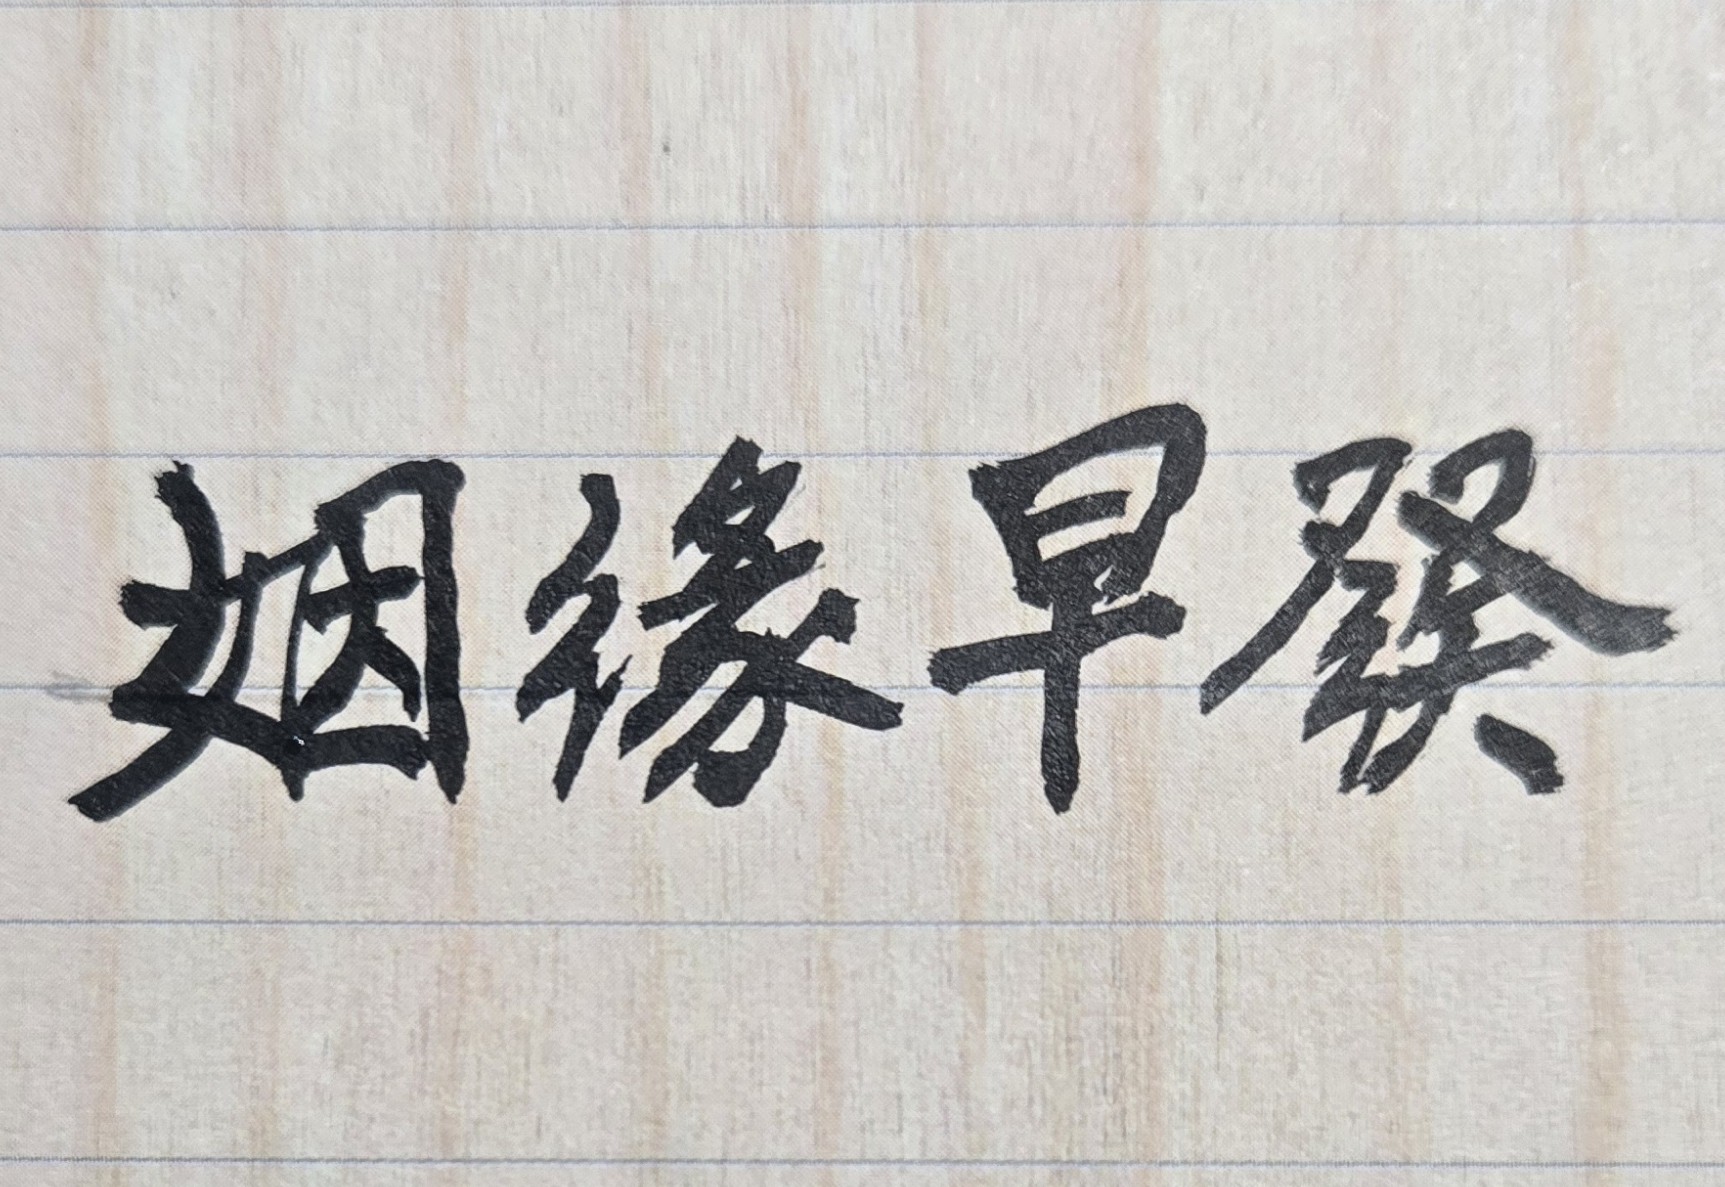 姻緣早發